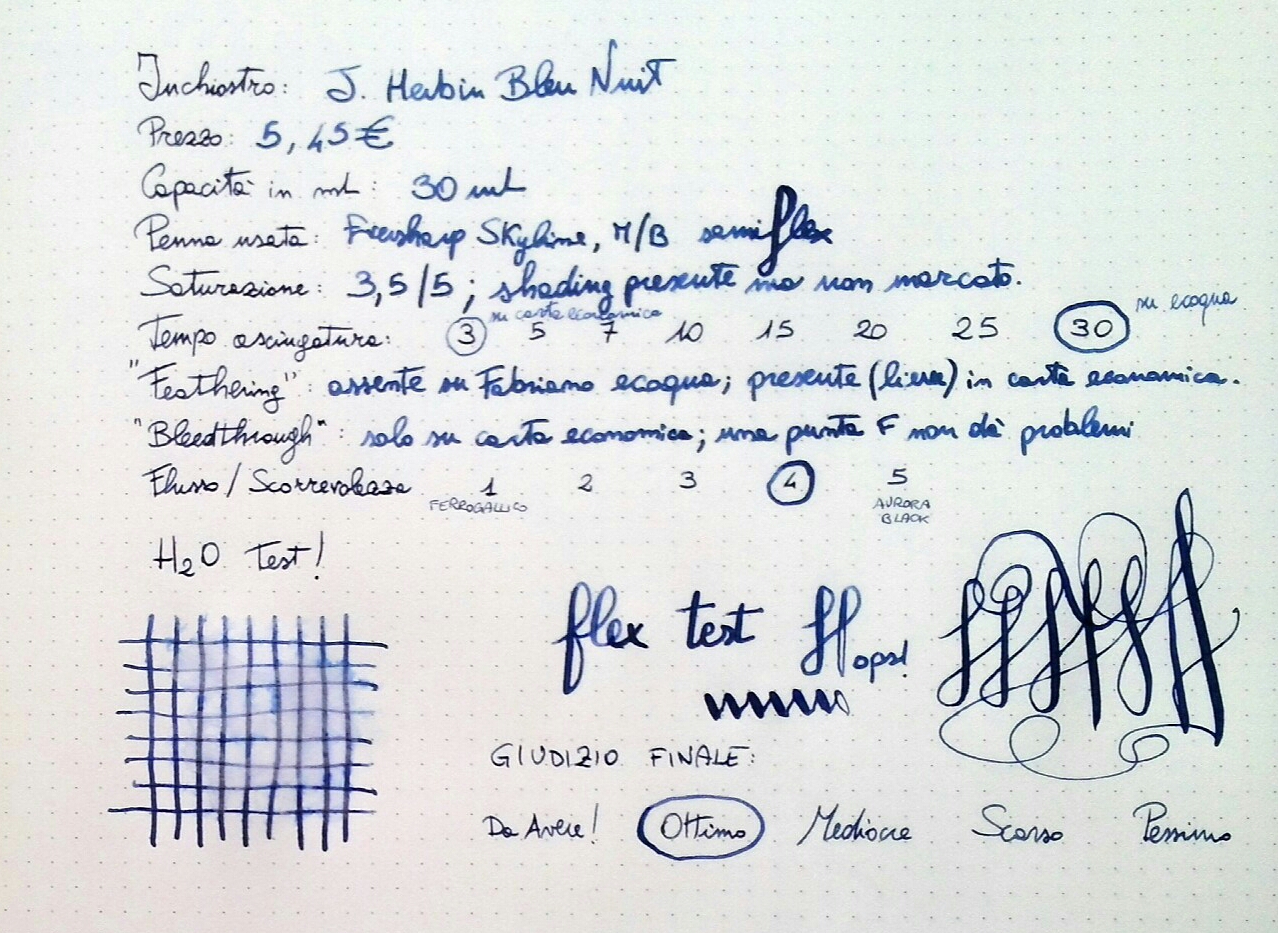 Inchiostro: J. Herbin Bleu Nuit
Prezzo: 5,45€
Capacità in ml: 30 ml
Penna usata: Eversharp Skyline, M/B semiflex
Saturazione: 3,5/5; shading presente ma non marcato.
su carta economica
su ecoqua
Tempo asciugatura: 3 5 7 10 15 20 25 30
"Feathering": assente su Fabriano ecoqua; presente (lieve) in carta economica.
"Bleedthrough": solo su carta economica; una punta F non dà problemi
Flusso/Scorrevolezza 1 2 3 4 5
FERROGALLICO
AURORA
BLACK
H2O Test!
flex test ff ops!
GIUDIZIO FINALE:
Da Avere! Ottimo Mediocre Scarso Pessimo